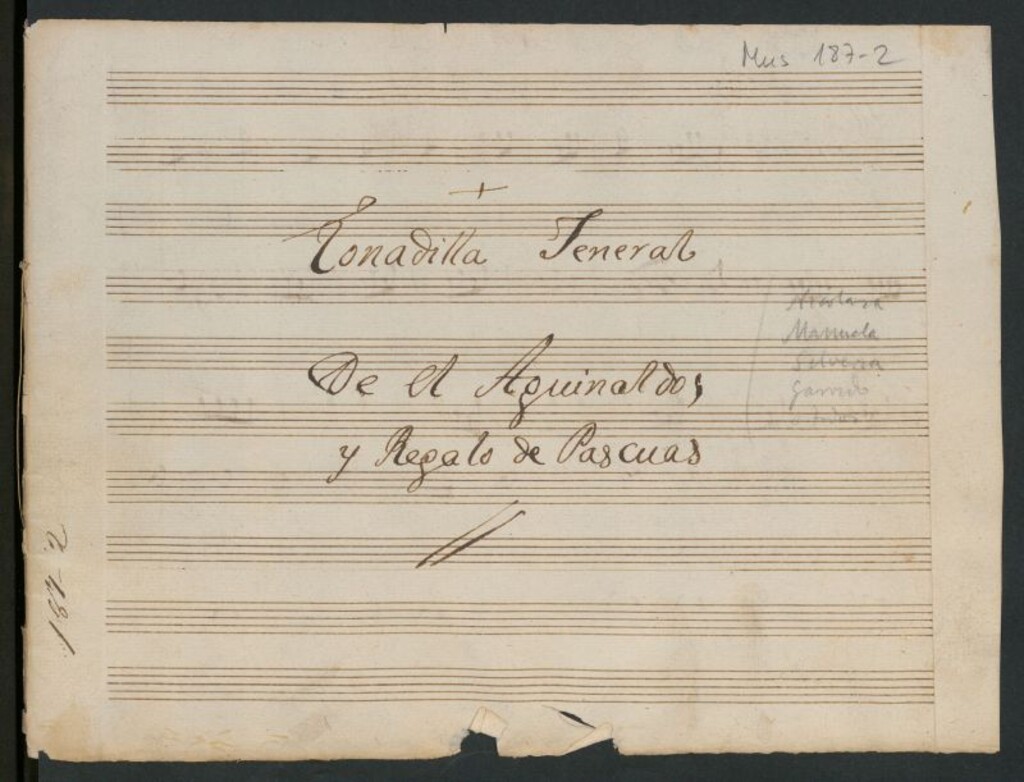 Mus 187-2
+
Tonadilla Jeneral
De el Aguinaldo,
y Regalo de Pascuas
Manuela
Garrido
187-2